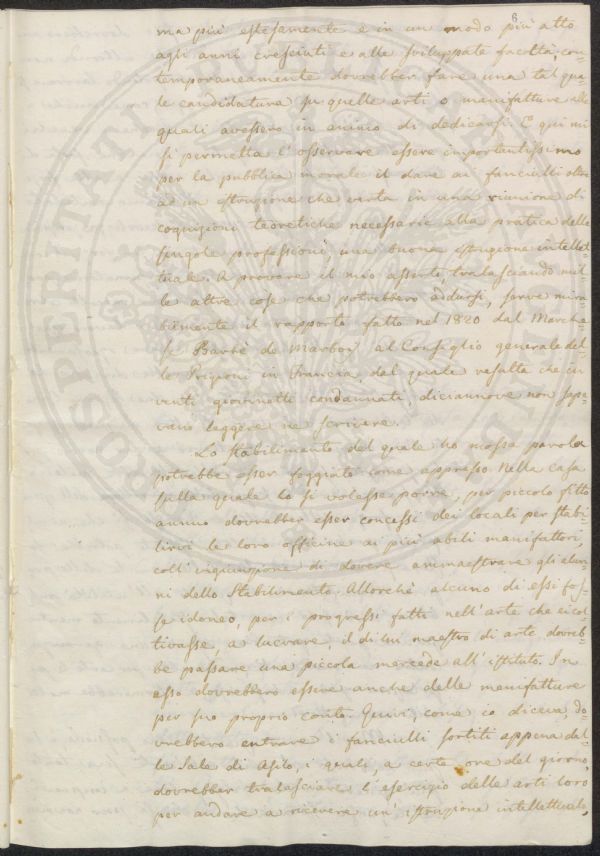 8
ma più estesamente e in un modo più atto
agli anni cresciuti e alle sviluppate facoltà, con-
temporaneamente dovrebber fare una tal qua-
le candidatura su quelle arti o manifatture alle
quali avessero in animo di dedicarsi. E qui mi
si permetta l'osservare essere importantissimo
per la pubblica morale il dare ai fanciulli oltre
ad un istruzione che verta in una riunione di
cognizioni teoretiche necessarie alla pratica delle
singole professioni, una buona istruzione intellet-
tuale. A provare il mio asserto, tralasciando mil-
le altre cose che potrebbero addursi, serve mira-
bilmente il rapporto fatto nel 1820 dal Marche-
se Barbè de Marboy al Consiglio generale del-
le Prigioni in Francia, dal quale resulta che in
venti giovinetti condannati diciannove non sape-
vano leggere ne scrivere.
Lo stabilimento del quale ho mossa parola
potrebbe esser foggiato come appresso. Nella casa
sulla quale lo si volesse porre, per piccolo fitto
annuo dovrebber esser concessi dei locali per stabi-
lirvi le loro officine ai più abili manifattori,
coll'ingiunzione di dovere ammaestrare gli alun-
ni dello Stabilimento. Allorchè alcuno di essi fos-
se idoneo, per i progressi fatti nell'arte che ei col-
tivasse, a lucrare, il di lui maestro di arte dovreb-
be passare una piccola mercede all'istituto. In
esso dovrebbero essere anche delle manifatture
per suo proprio conto. Quivi, come io diceva, do-
vrebbero entrare i fanciulli sortiti appena dal-
le Sale di Asilo, i quali, a certe ore del giorno,
dovrebber tralasciare l'esercizio delle arti loro
per andare a ricevere un'istruzione intellettuale,
PROSPERITATI